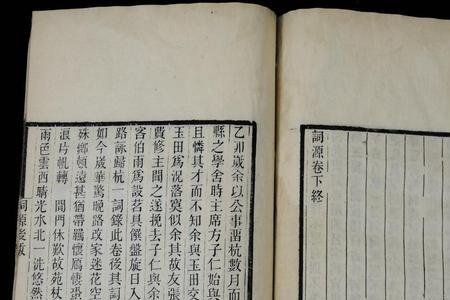 詞源卷下終
乙卯歲余以公事畱杭數月而
縣之學舍時主席方子仁始與
且憐其才而不知余與玉田交
玉田爲況落寞似余其故友張
費修主閒之遂挽去子仁與余
客伯雨爲設茗具饌盤旋日入
路詠歸杭一詞錄此卷後其詞
如今歲華驚晚路改家迷花空
殊鄉頓遠甚猶帶羈懷鴈悽
浪片帆轉 閒門休歎故苑杖
雨色雲西晴光水北一洗悠然
詞源後跋